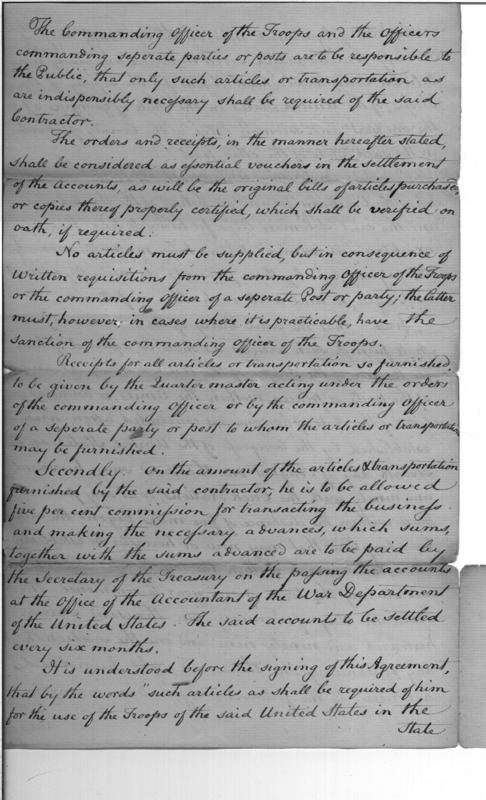 The Commanding Officer of the Troops and the Officers
commanding seperate parties or posts are to be responsible to
the Public, that only such articles or transportation as
are indispensibly necessary shall be required of the said
Contractor.
The orders and receipts, in the manner hereafter stated,
shall be considered as essential vouchers in the settlement
of the accounts, as will be the original bills of articles purchased
or copies thereof properly certified, which shall be verified on
oath, if required.
No articles must be supplied, but in consequence of
Written requisitions from the commanding Officer of the Troops
or the commanding Officer of a seperate Post or party; the latter
must, however, in cases where it is practicable, have the
Sanction of the commanding Officer of the Troops.
Receipts for all articles or transportation so furnished
to be given by the Quarter master acting under the orders
of the commanding Officer or by the commanding Officer
of a seperate party or post to whom the articles or transportation
may be furnished.
Secondly. On the amount of the articles & transportation
furnished by the said contractor, he is to be allowed
five per cent commission for transacting the business
and making the necessary advances, which sums,
together with the sums advanced are to be paid by
the Secretary of the Treasury on the passing the accounts
at the Office of the Accountant of the War Department
of the United States. The said accounts to be settled
every six months.
It is understood before the signing of this Agreement,
that by the words "such articles as shall be required of him
for the use of the Troops of the said United States in the
State